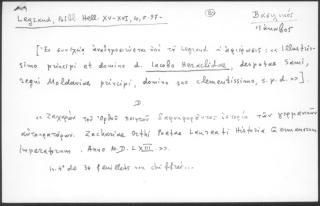 Legrand, Bibl. Hell. XV-XVI, 4, σ. 57-
Βασιλικός
Ἰάκωβος
[ Ἐν συνεχείᾳ ὑπὸ τοῦ Legrand ἡ ἀφιέρωσις : « Illustris-
simo principi et domino d. Iacobo Heraclidae, despotae Sami,
regni Moldaviae principi, domino suo clementissimo, s. p. d. »]
« Ζαχαρίου τοῦ Ὀρθοῦ ποιητοῦ δαφνηφόρου ἱστορία τῶν γερμανῶν
αὐτοκρατόρων. Zachariae Orthi Poetae Laureati Historia Germanorum
Imperatorum. Anno M.D.LXIII. ».
in-4° de 34 feuillets non chiffrés...